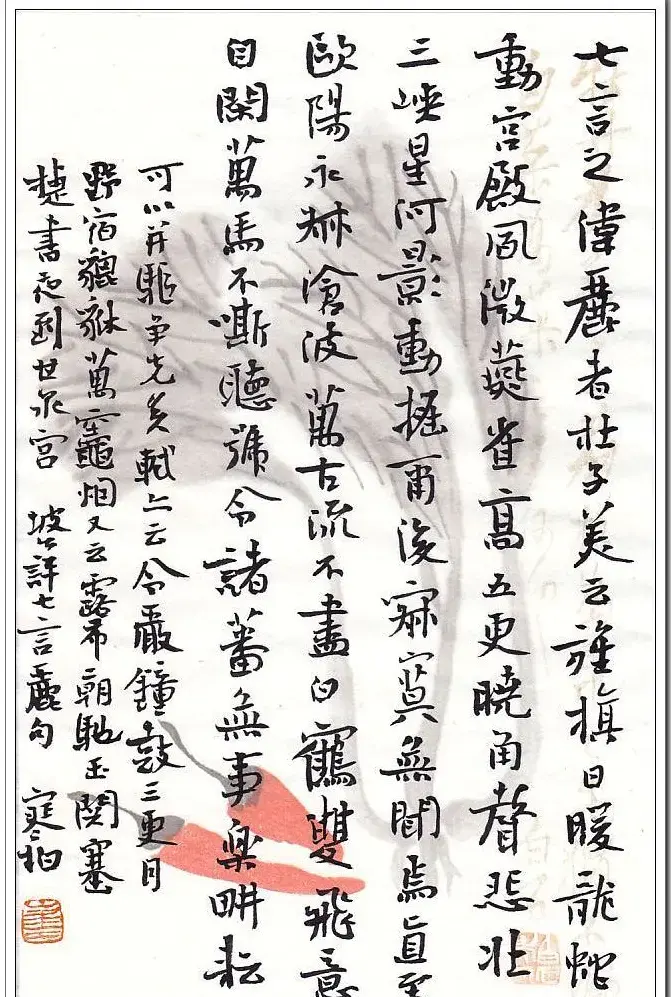 七言之偉麗者杜子美云旌旗日暖龍蛇
動宮殿風微燕雀高五更曉角聲悲壯
三峽星河影動搖爾後寂寞無聞焉直至
歐陽永叔滄波萬古流不盡白鶴雙飛意
自閑萬馬不嘶聽號令諸蕃無事樂耕耘
可以并驅争先矣軾亦云令嚴鐘鼓三更月
野宿貔貅萬竈烟又云露布朝馳玉関塞
捷書夜到甘泉宮 坡公評七言麗句 寒柏